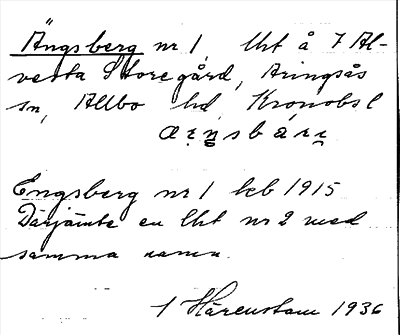 Ängsberg nr 1, lht å 7 Al-
vesta Storegård, Aringsås
sn, Allbo hd, Kronobs l
Engsberg nr 1 kcb 1915
Därjämte en lht nr 2 med
samma namn.
1 Härenstam 1936